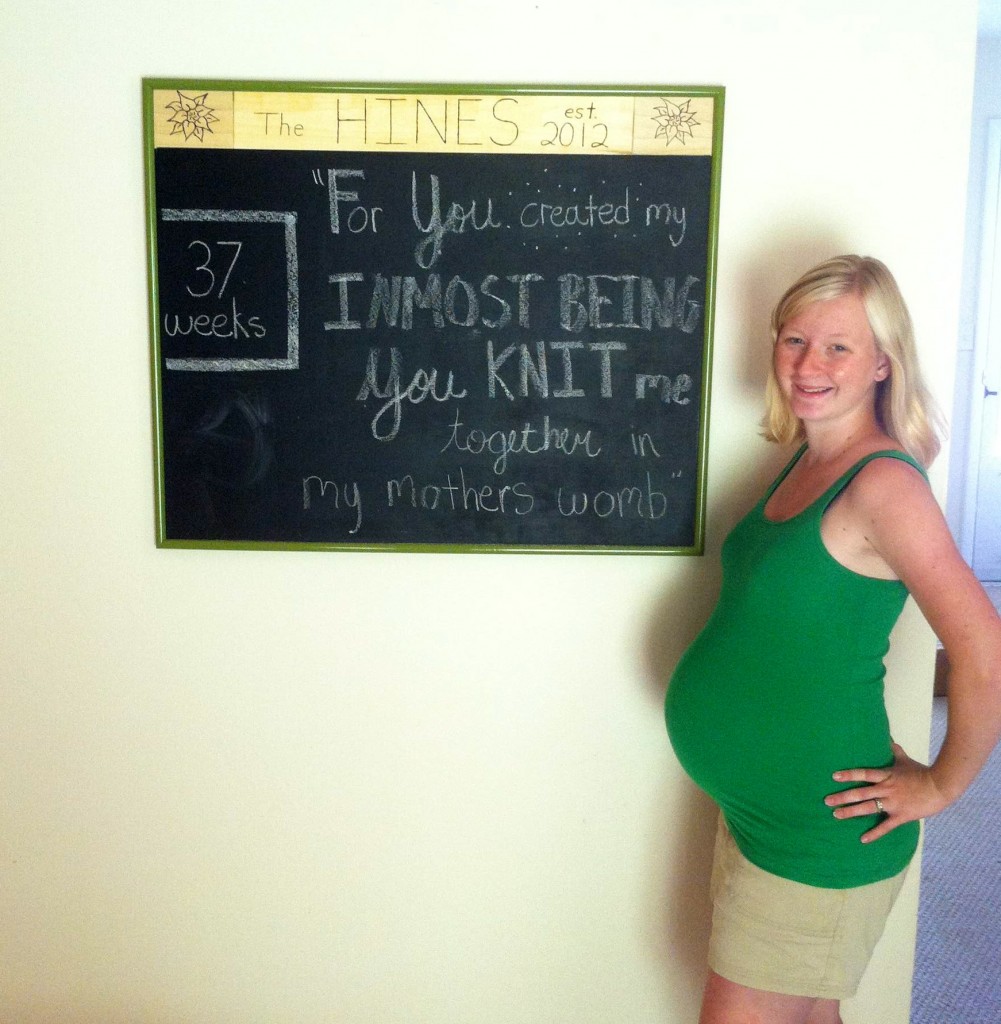 The HINES est. 2012
37
weeks
"For You created my
INMOST BEING
You KNIT me
together in
my mothers womb"